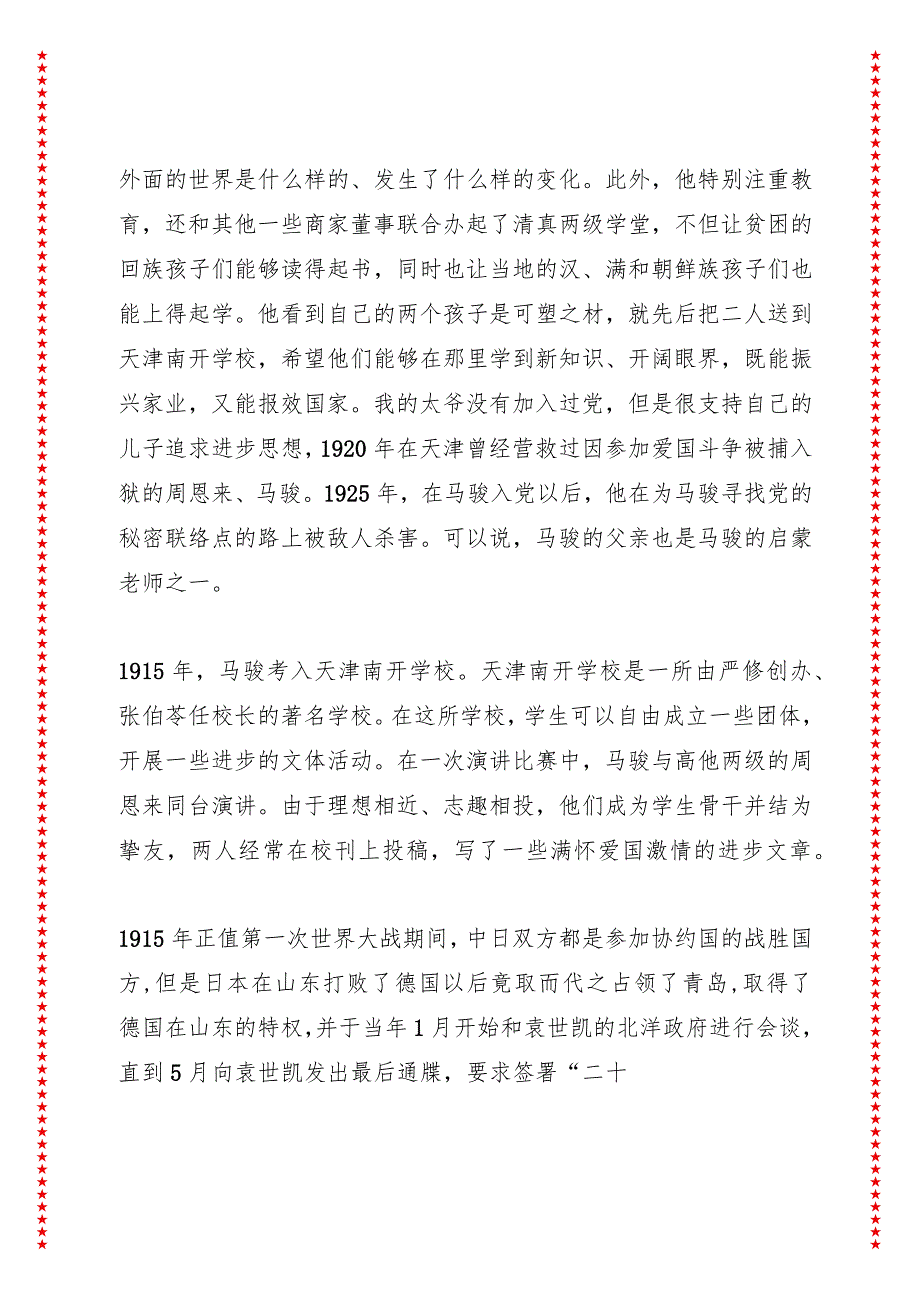 外面的世界是什么样的、发生了什么样的变化。此外，他特别注重教
育，还和其他一些商家董事联合办起了清真两级学堂，不但让贫困的
回族孩子们能够读得起书，同时也让当地的汉、满和朝鲜族孩子们也
能上得起学。他看到自己的两个孩子是可塑之材，就先后把二人送到
天津南开学校，希望他们能够在那里学到新知识、开阔眼界，既能振
兴家业，又能报效国家。我的太爷没有加入过党，但是很支持自己的
儿子追求进步思想，1920 年在天津曾经营救过因参加爱国斗争被捕入
狱的周恩来、马骏。1925 年，在马骏入党以后，他在为马骏寻找党的
秘密联络点的路上被敌人杀害。可以说，马骏的父亲也是马骏的启蒙
老师之一。
1915 年，马骏考入天津南开学校。天津南开学校是一所由严修创办、
张伯苓任校长的著名学校。在这所学校，学生可以自由成立一些团体，
开展一些进步的文体活动。在一次演讲比赛中，马骏与高他两级的周
恩来同台演讲。由于理想相近、志趣相投，他们成为学生骨干并结为
挚友，两人经常在校刊上投稿，写了一些满怀爱国激情的进步文章。
1915 年正值第一次世界大战期间，中日双方都是参加协约国的战胜国
方,但是日本在山东打败了德国以后竟取而代之占领了青岛,取得了
德国在山东的特权,并于当年 1 月开始和袁世凯的北洋政府进行会谈，
直到 5 月向袁世凯发出最后通牒，要求签署“二十